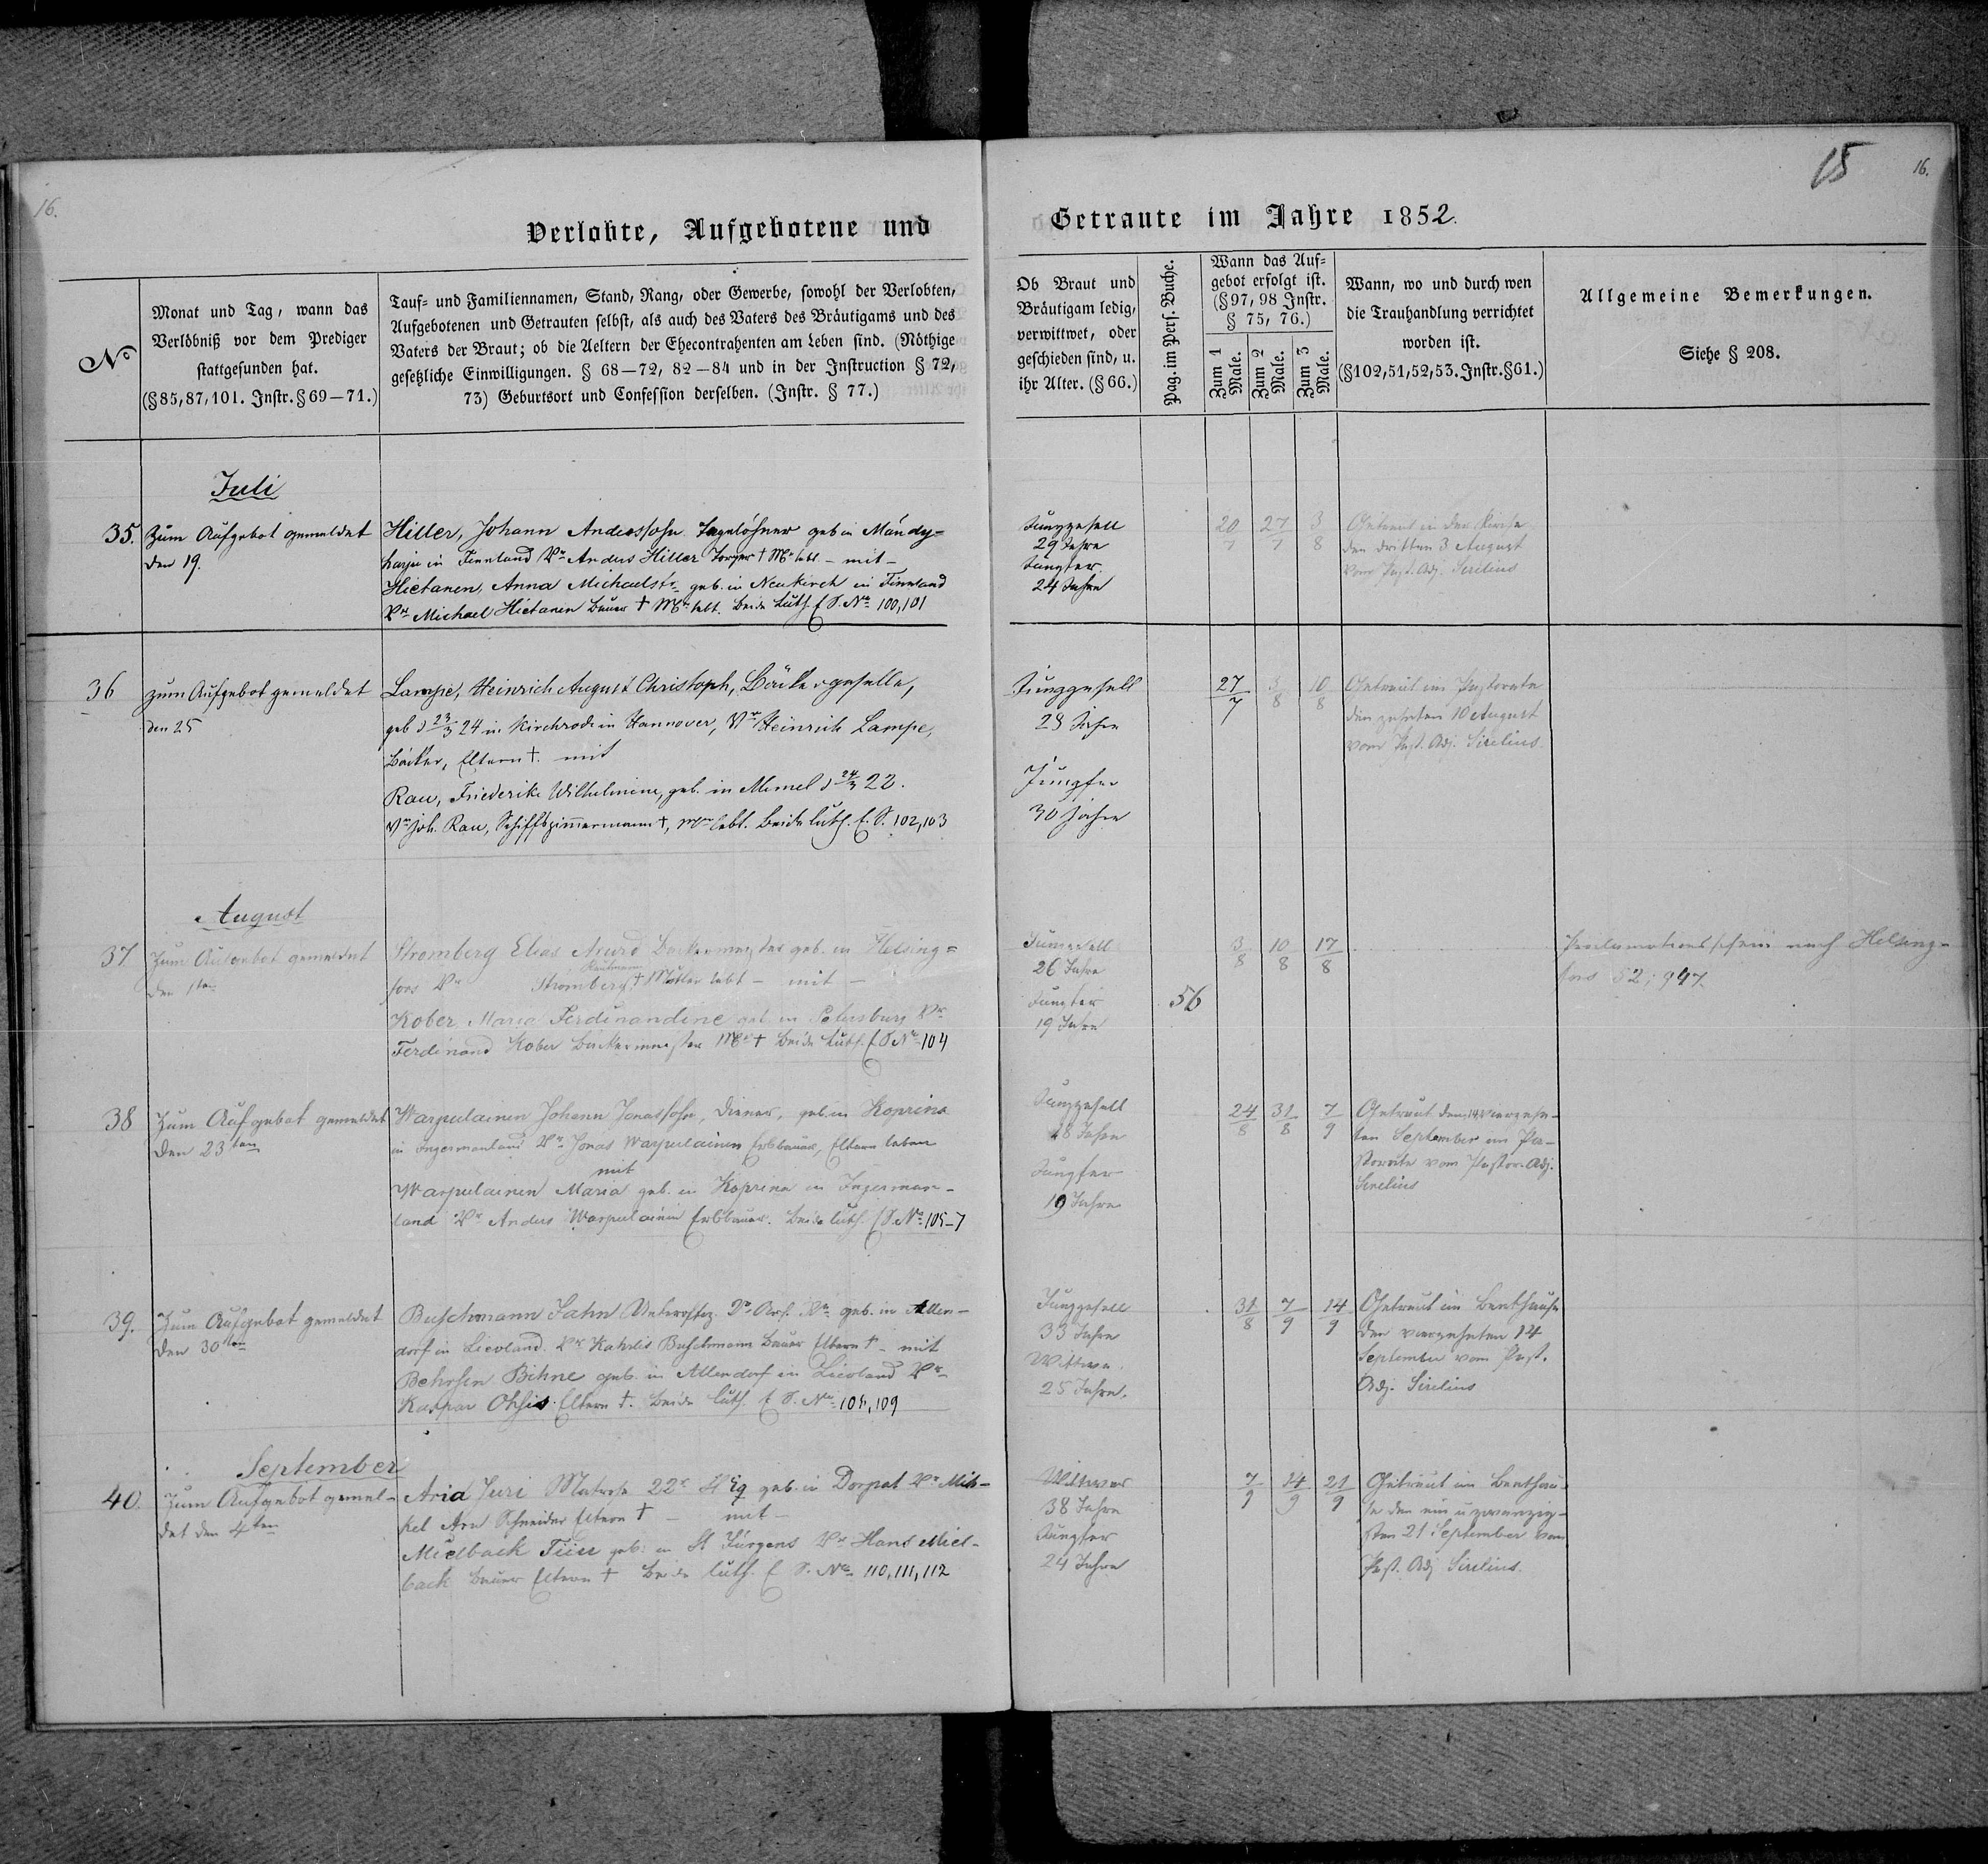 16.
15
16.
Verlobte, Aufgebotene und
Getraute im Jahre 1852.
No
Monat und Tag, wann das
Verlöbniß vor dem Prediger
stattgefunden hat.
(§ 85, 87, 101. Instr. § 69—71.)
Tauf- und Familiennamen, Stand, Rang, oder Gewerbe, sowohl der Verlobten,
Aufgebotenen und Getrauten selbst, als auch des Vaters des Bräutigams und des
Vaters der Braut; ob die Aeltern der Ehecontrahenten am Leben sind. (Nöthige
gesetzliche Einwilligungen. § 68—72, 82—84 und in der Instruction § 72,
73) Geburtsort und Confession derselben. (Instr. § 77.)
Ob Braut und
Bräutigam ledig,
verwittwet, oder
geschieden sind, u.
ihr Alter. (§ 66.)
Pag. im Pers. Buche.
Wann das Auf=
gebot erfolgt ist.
(§ 97, 98 Instr.
§ 75, 76.)
Zum 1 Male.
Zum 2 Male.
Zum 3 Male.
Wann, wo und durch wen
die Trauhandlung verrichtet
worden ist.
(§ 102, 51, 52, 53. Instr. § 61.)
Allgemeine Bemerkungen.
Siehe § 208.
Juli
35.
Zum Aufgebot gemeldet
den 19.
Hiller, Johann Anderssohn Tagelöhner geb in Mändy=
harju in Finnland Vr Anders Hiller † Mr lebt. – mit –
Hietanen, Anna Michaelstr geb. in Neukirch in Finnland
Vr Michael Hietanen Bauer † Mr lebt. Beide Luth. f. S. No 100, 101
Junggesell
29 Jahre
Jungfer.
24 Jahre
20/7 27/7 3/8
Getraut in der Kirche
den dritten 3 August
vom Past. Adj. Sirelius
36
zum Aufgebot gemeldet
den 25
Lampe, Heinrich August Christoph, Bäckergeselle,
geb d 23/3 24 in Kirchrode in Hannover, Vr Heinrich Lampe,
Bäcker, Eltern †. mit
Rau, Friederike Wilhelmine, geb. in Memel d 24/3 22.
Vr Joh. Rau, Schiffszimmermann †, Mr lebt. Beide luth. f. S. 102, 103
Junggesell
28 Jahre
Jungfer
30 Jahre
27/7 3/8 10/8
Getraut im Pastorate
den zehnten 10 August
vom Past. Adj. Sirelius.
August
37
Zum Aufgebot gemeldet
den 1ten
Stromberg Elias Bäckermeister geb. in Helsing=
fors Vr Stromberg, Kaufmann † Mutter lebt – mit –
Kober Maria Ferdinandine geb in Petersburg Vr
Ferdinand Kober Bäckermeister Mr † Beide Luth. f. S. No 104
Junggesell
26 Jahre
Jungfer
19 Jahre
56
3/8 10/8 17/8
Proclamationsschein nach Helsing-
fors 52; 947.
38
Zum Aufgebot gemeldet
den 23ten
Warpulainen Johann Jonassohn, Diener, geb. in Koprina
in Ingermanland Vr Jonas Warpulainen Erbbauer, Eltern leben
mit
Warpulainen Maria geb. in Koprina in Ingerman-
land Vr Anders Warpulainen Erbbauer. Beide luth. f S. No 105–7
Junggesell
28 Jahre
Jungfer
19 Jahre
24/8 31/8 7/9
Getraut den 14 vierzehn-
ten September im Pa-
storate vom Pastor-Adj.
Sirelius
39.
Zum Aufgebot gemeldet
den 30ten
Buschmann Jahn Unteroffiz. geb. in Allen-
dorf in Lievland. Vr Kahrlis Buschmann Bauer Eltern † – mit
Behrsin Bihne geb. in Allendorf in Lievland Vr
Kaspar Ohsis Eltern †. Beide luth. f. S. No 108, 109
Junggesell
33 Jahre
Wittwe.
25 Jahre.
31/8 7/9 14/9
Getraut im Bethause
den vierzehnten 14
September vom Past.
Adj. Sirelius
September
40.
Zum Aufgebot gemel-
det den 4ten
Aria Juri Matrose 22r Eq geb. in Dorpat Vr Mih-
kel Schneider Eltern † – mit –
Mielback Tiiu geb. in St Jürgens Vr Hans Miel-
back Bauer Eltern † Beide luth. f S. No 110, 111, 112
Wittwer
38 Jahre
Jungfer
24 Jahre
7/9 14/9 21/9
Getraut im Bethau-
se den ein u zwanzig-
sten 21 September vom
Past. Adj Sirelius.